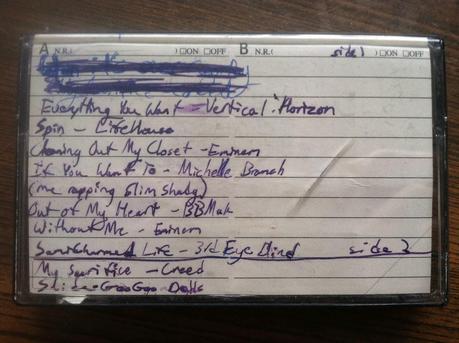 A N.R.( ) ON OFF B N.R.( side 1 ) ON OFF
Everything You Want - Vertical Horizon
Spin - Lifehouse
Cleaning Out My Closet - Eminem
If You Want To - Michelle Branch
(me rapping slim shady)
Out of My Heart - BBMak
Without Me - Eminem
Semi-Charmed Life - 3rd Eye Blind side 2
My Sacrifice - Creed
Slide - Goo Goo Dolls